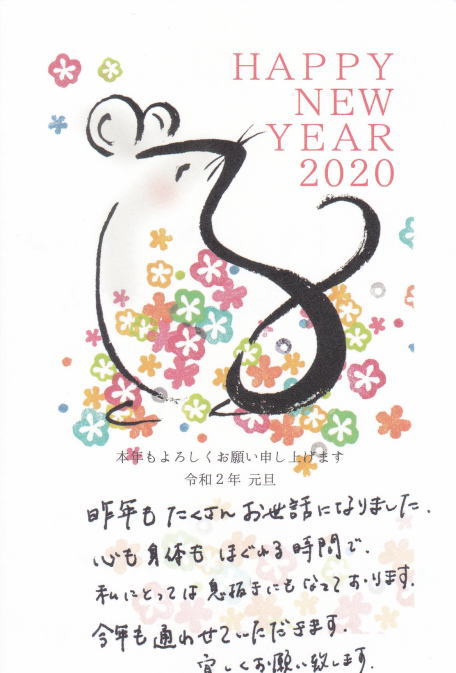 HAPPY
NEW
YEAR
2020
本年もよろしくお願い申し上げます
令和2年 元旦
昨年も たくさん お世話になりました.
心も 身体も ほぐれる 時間で.
私にとっては 息抜きにもなっております.
今年も 通わせていただきます.
宜しくお願い致します.